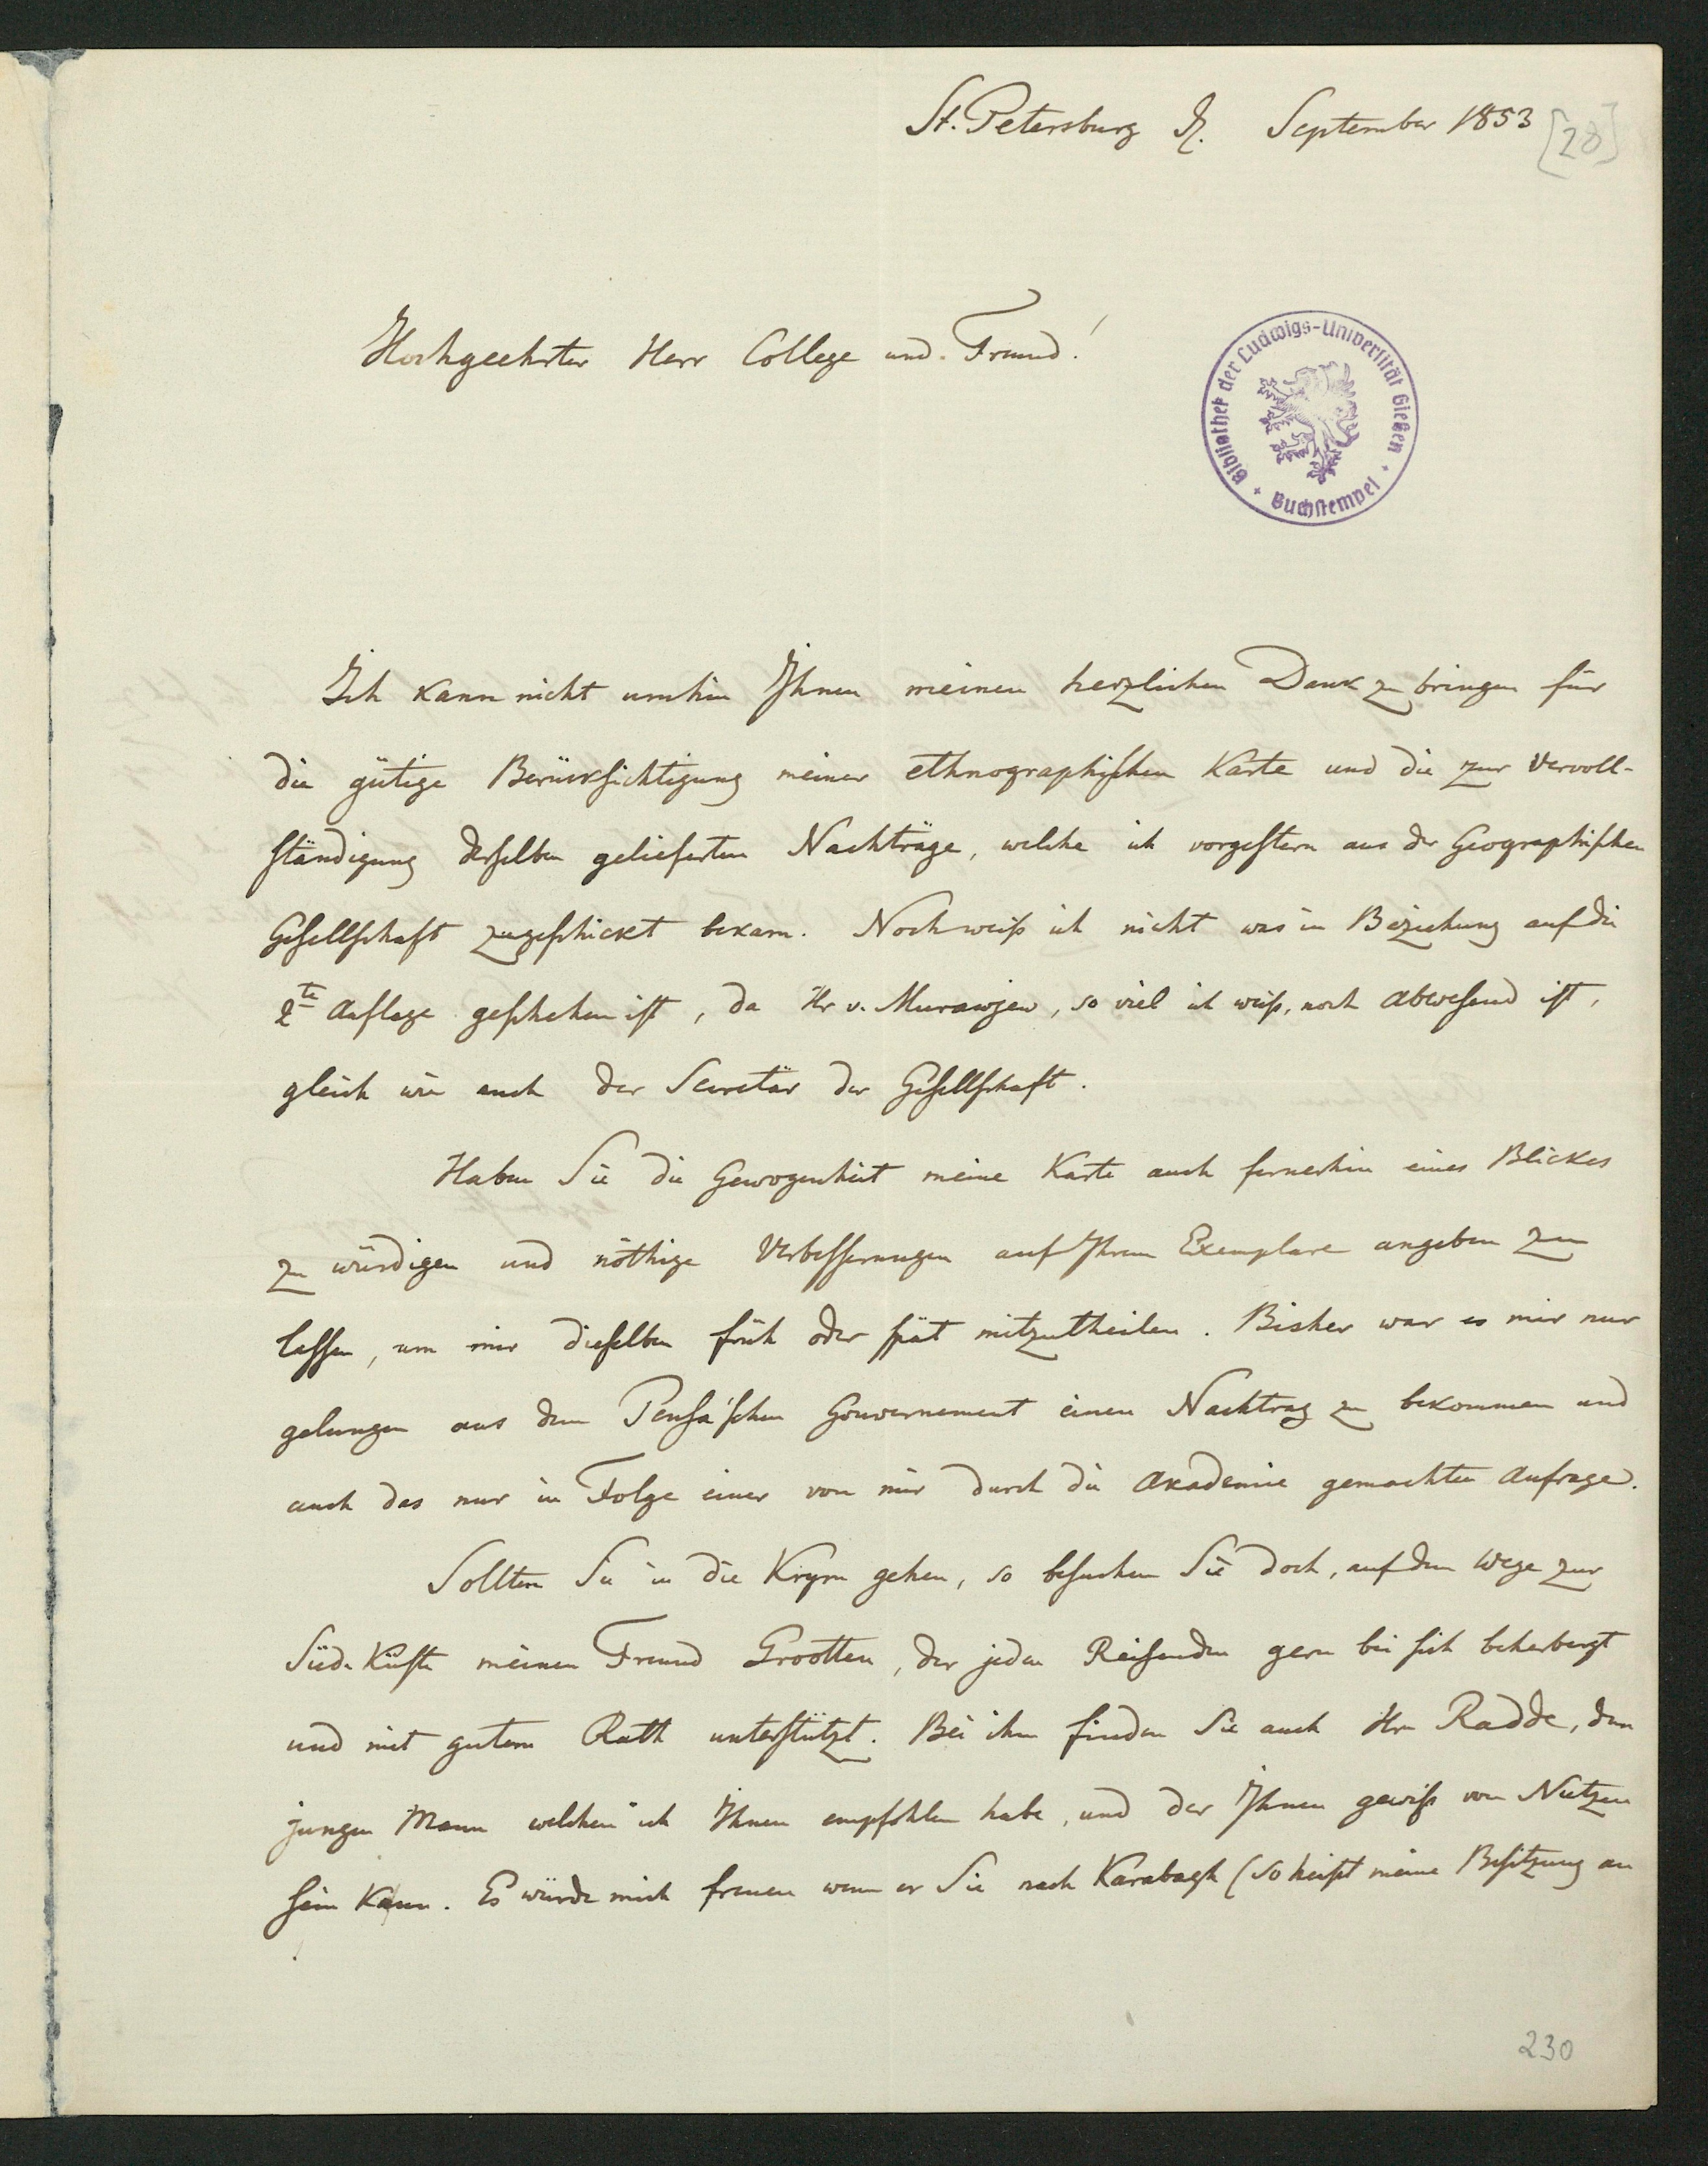 St. Petersburg d. September 1853
[28]
Hochgeehrter Herr College und Freund!
Bibliothek der Ludwigs-Universität Gießen
Buchstempel
Ich kann nicht umhin Ihnen meinen herzlichen Dank zu bringen für
die gütige Berücksichtigung meiner ethnographischen Karte und die zur Vervoll-
ständigung derselben gelieferten Nachträge, welche ich vorgestern aus der Geographischen
Gesellschaft zugeschickt bekam. Noch weiss ich nicht was in Beziehung auf die
2te Auflage geschehen ist, da Hr v. Murawjew, so viel ich weiss, noch abwesend ist,
gleich wie auch der Secretär der Gesellschaft.
Haben Sie die Gewogenheit meine Karte auch fernerhin eines Blickes
zu würdigen und nöthige Verbesserungen auf Ihrem Exemplare angeben zu
lassen, um mir dieselben früh oder spät mitzutheilen. Bisher war es mir nur
gelungen aus dem Pensa'schen Gouvernement einen Nachtrag zu bekommen und
auch das nur in Folge einer von mir durch die Akademie gemachten Anfrage.
Sollten Sie in die Krym gehen, so besuchen Sie doch, auf dem Wege zur
Süd-Küste meinen Freund Grootten, der jeden Reisenden gern bei sich beherbergt
und mit gutem Rath unterstützt. Bei ihm finden Sie auch Hrn Radde, den
jungen Mann welchen ich Ihnen empfohlen habe, und der Ihnen gewiss von Nutzen
sein kann. Es würde mich freuen wenn er Sie nach Karabagh (so heisst meine Besitzung an
230